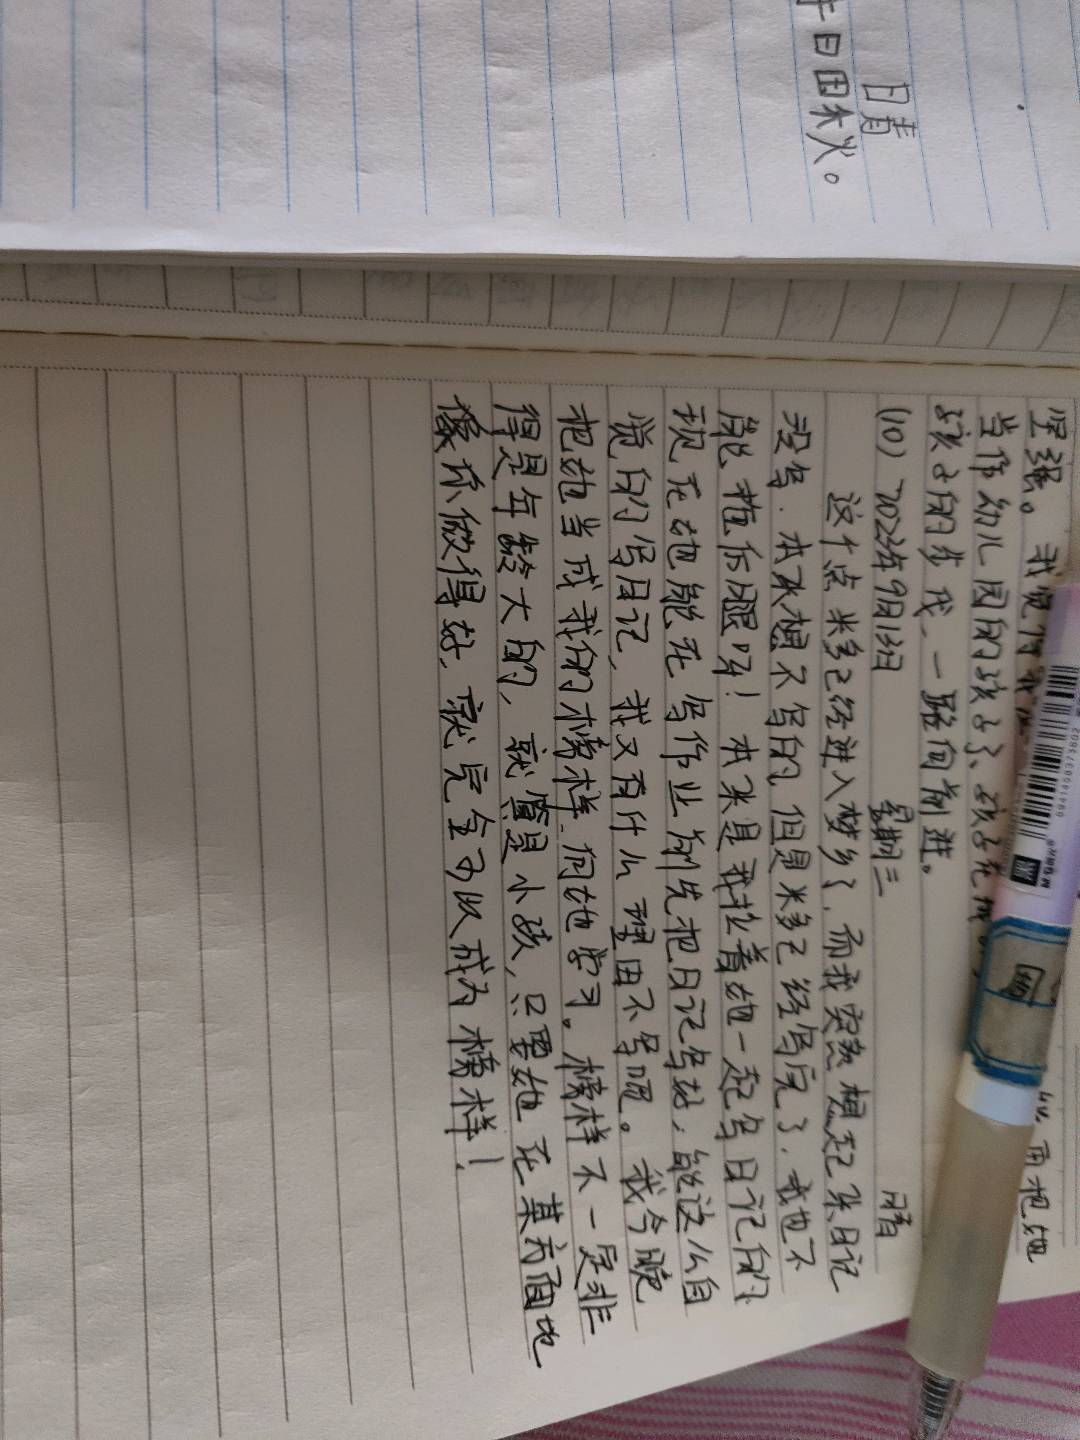 晴
午日田禾火。
坚强。我觉得
当作幼儿园的孩子、孩子在
孩子的步伐，一路向前进。
(10) 2022年9月15日 星期三 晴
这个点米多已经进入梦乡了，而我突然想起来日记
没写．本来想不写的，但是米多已经写完了，我也不
能拖后腿呀！本来是我拉着她一起写日记的
现在她能在写作业前先把日记写好，能这么自
觉的写日记，我又有什么理由不写呢。我今晚
把她当成我的榜样，向她学习。榜样不一定非
得是年龄大的，就算是小孩，只要她在某方面比
像你做得好，就完全可以成为榜样！
再把她
6941458373802
M&G